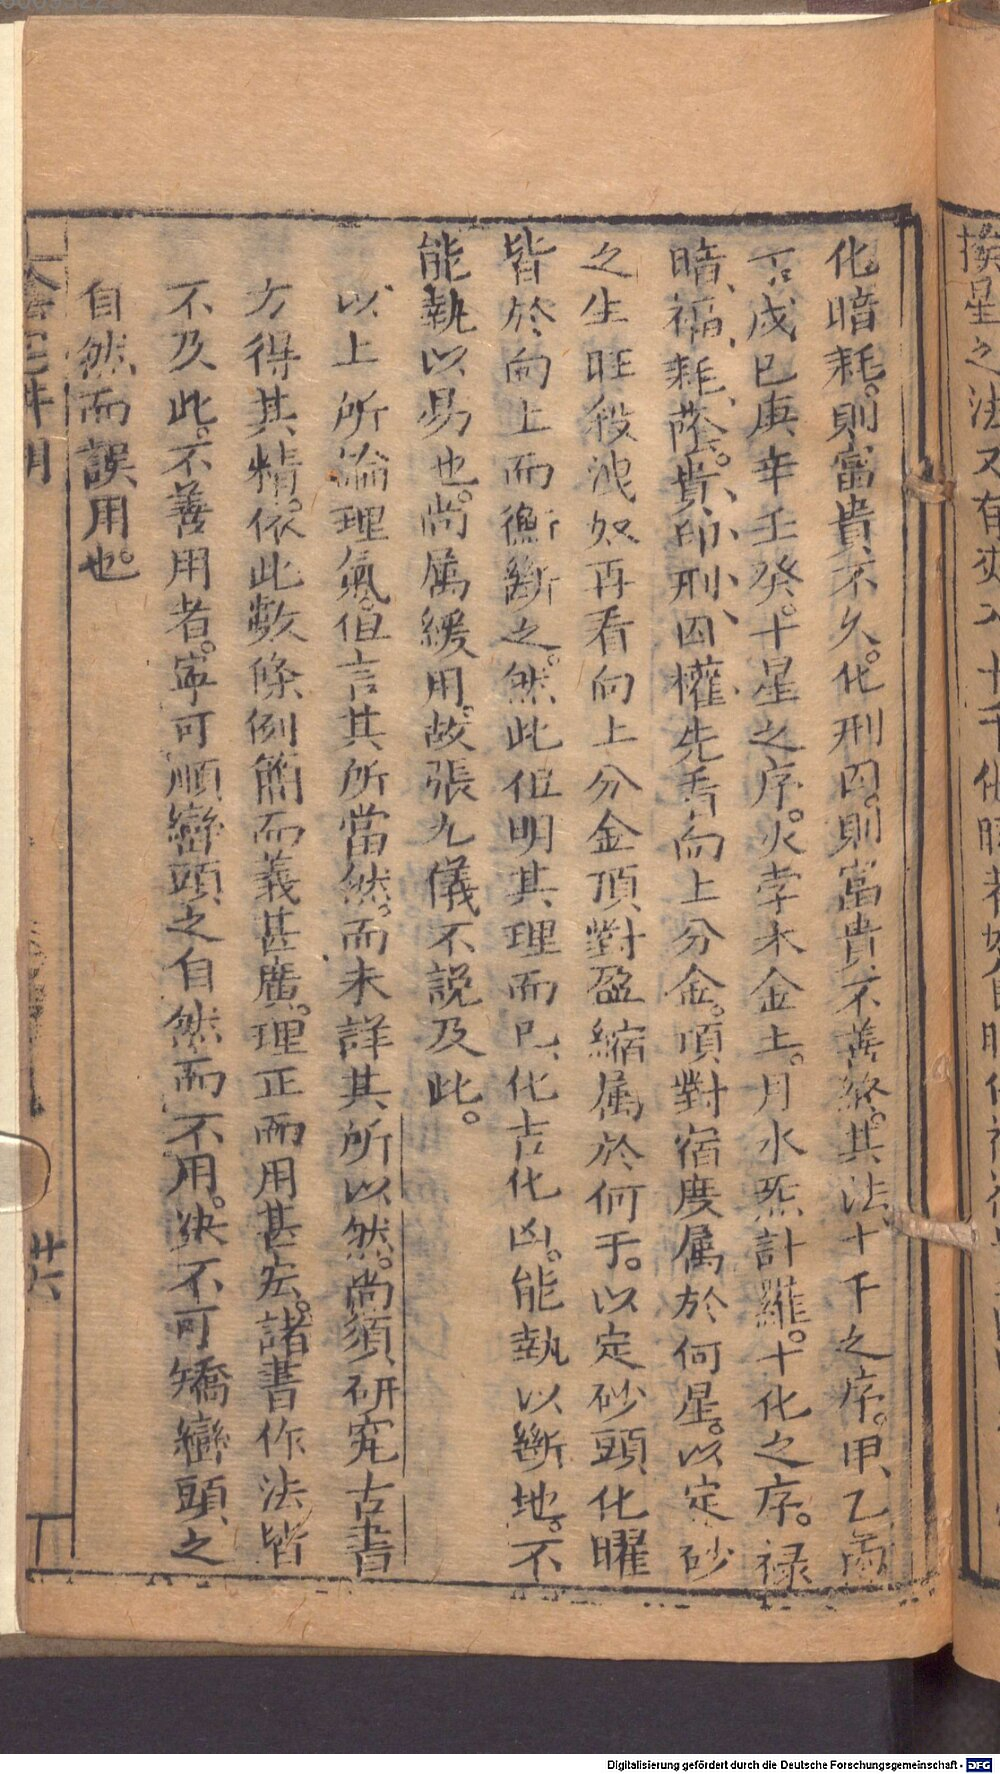 化暗耗。則富貴不久。化刑囚。則富貴不善終。其法、十干之序。甲、乙丙
丁戊巳庚辛壬癸。十星之序。火孛木金土。月水炁計羅。十化之序。祿
暗、福、耗、蔭。貴、印、刑、囚、權、先看向上分金。頂對宿度属於何星。以定砂
之生旺殺洩奴再看向上分金頂對盈縮属於何干。以定砂頭化曜
皆於向上而衡斷之。然此但明其理而巳、化吉化凶。能執以斷地。不
能執以易也。尚属緩用。故張九儀不説及此。
以上所論理氣。但言其所當然。而未詳其所以然。尚須研究古書
方得其精。依此數條例簡而義甚廣。理正而用甚宏。諸書作法皆
不及此。不善用者。寕可順巒頭之自然而不用。決不可矯巒頭之
自然而誤用也。
廿六
Digitalisierung gefördert durch die Deutsche Forschungsgemeinschaft - DFG